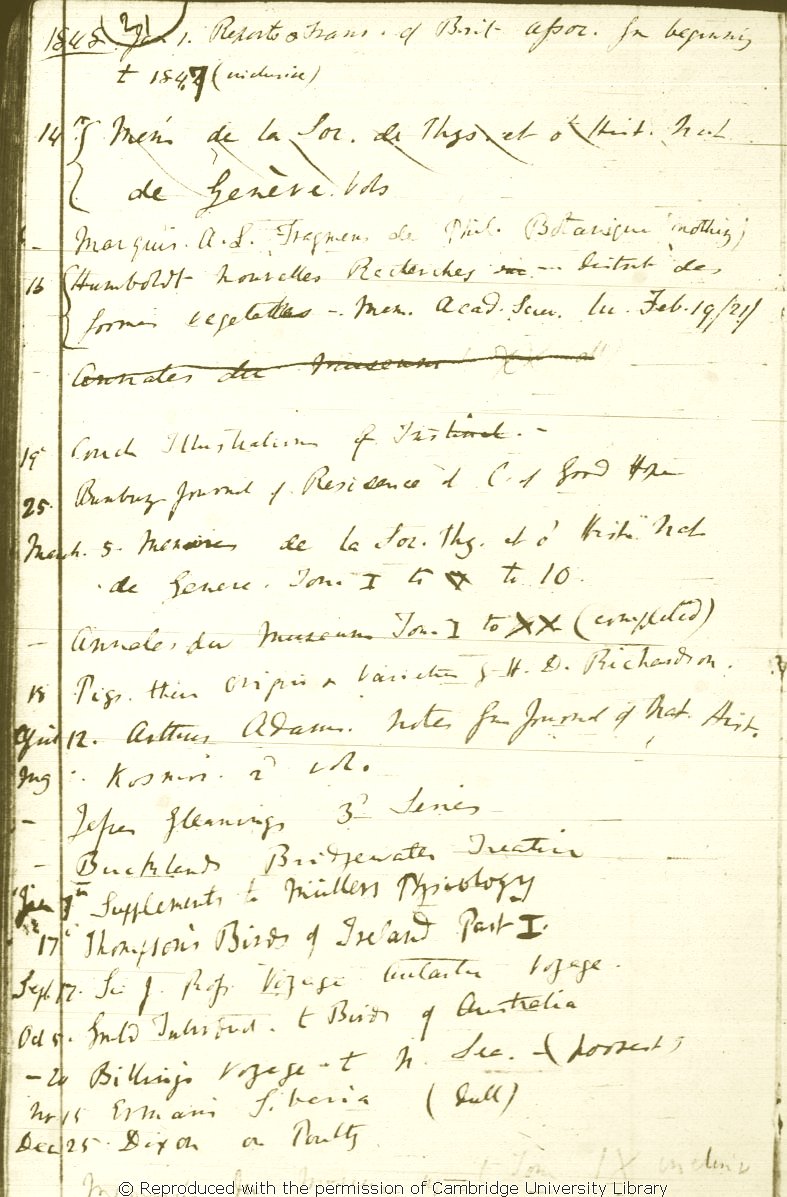 21
1848 Jan 1. Reports & Trans. of Brit assoc. from beginning
t 1847 (inclusive)
14th Mem de la Soc. de Phys. et d' Hist. Nat
de Genève. Vols
- Marquis. A. L. Fragmens de Phil. Botanique (nothing)
16 Humboldt Nouvelles Recherches - distrib des
formes vegetables - Mem. Acad. Scien. lu. Feb. 19/21/
Annales du Museum XX
19 Couch Illustrations of Instinct. -
25. Bunbury Journal of Residence at C. of Good Hope
March. 5. Memoires de la Soc. Phy. et d' Hist. Nat
de Geneve. Tom. I to to 10.
- Annales du Museum Tom. I to XX (completed)
18 Pigs. their origin & varieties by H. D. Richardson.
April 12. Arthur Adams. Notes from Journal of Nat. Hist.
Kosmos. 2d vol.
- Jesse Gleanings 3d Series
- Bucklands Bridgewater Treatise
Supplements to Müllers Physiology
17 Thompson's Birds of Ireland Part I.
Sept 17. Sir J. Ross Voyage Antarctic Voyage.
Oct 5. Gould Introduct. t Birds of Australia
- 20 Billings Voyage t N. Sea. - (poorest)
Nov 15 Ermans Siberia (dull)
Dec 25. Dixon on Poultry
© Reproduced with the permission of Cambridge University Library